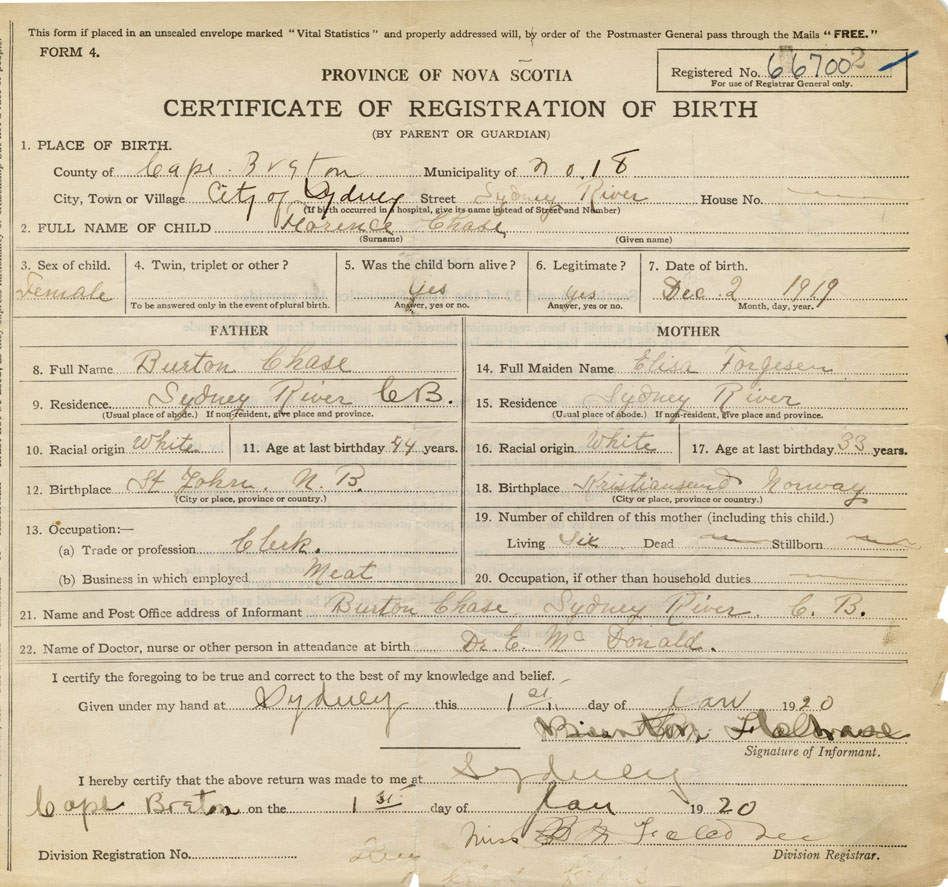 This form if placed in an unsealed envelope marked "Vital Statistics" and properly addressed will, by order of the Postmaster General pass through the Mails "FREE."
FORM 4.
Registered No. 667002
For use of Registrar General only.
PROVINCE OF NOVA SCOTIA
CERTIFICATE OF REGISTRATION OF BIRTH
(BY PARENT OR GUARDIAN)
1. PLACE OF BIRTH.
County of Cape Breton Municipality of No. 18
City, Town or Village City of Sydney Street Sydney River House No.
(If birth occurred in hospital, give its name instead of Street and Number)
2. FULL NAME OF CHILD Florence Chase
(Surname) (Given name)
3. Sex of child. 4. Twin, triplet or other? 5. Was the child born alive? 6. Legitimate? 7. Date of birth.
Female yes yes Dec. 2 1919
To be answered only in the event of plural birth. Answer, yes or no. Answer, yes or no. Month, day, year.
FATHER
8. Full Name Burton Chase
9. Residence Sydney River C.B.
(Usual place of abode.) If non-resident, give place and province.
10. Racial origin White 11. Age at last birthday 44 years.
12. Birthplace St John, N. B.
(City or place, province or country.)
13. Occupation:—
(a) Trade or profession Clerk.
(b) Business in which employed Meat
MOTHER
14. Full Maiden Name Elisa Torjesen
15. Residence Sydney River
(Usual place of abode.) If non-resident, give place and province.
16. Racial origin White 17. Age at last birthday 33 years.
18. Birthplace Kristiansund Norway
(City or place, province or country.)
19. Number of children of this mother (including this child.)
Living Six Dead Stillborn
20. Occupation, if other than household duties
21. Name and Post Office address of Informant Burton Chase Sydney River, C. B.
22. Name of Doctor, nurse or other person in attendance at birth Dr. E. McDonald.
I certify the foregoing to be true and correct to the best of my knowledge and belief.
Given under my hand at Sydney this 1st day of Jan 1920
Signature of Informant.
I hereby certify that the above return was made to me at Sydney
Cape Breton on the 1st day of Jan 1920
Miss
Division Registration No. Division Registrar.